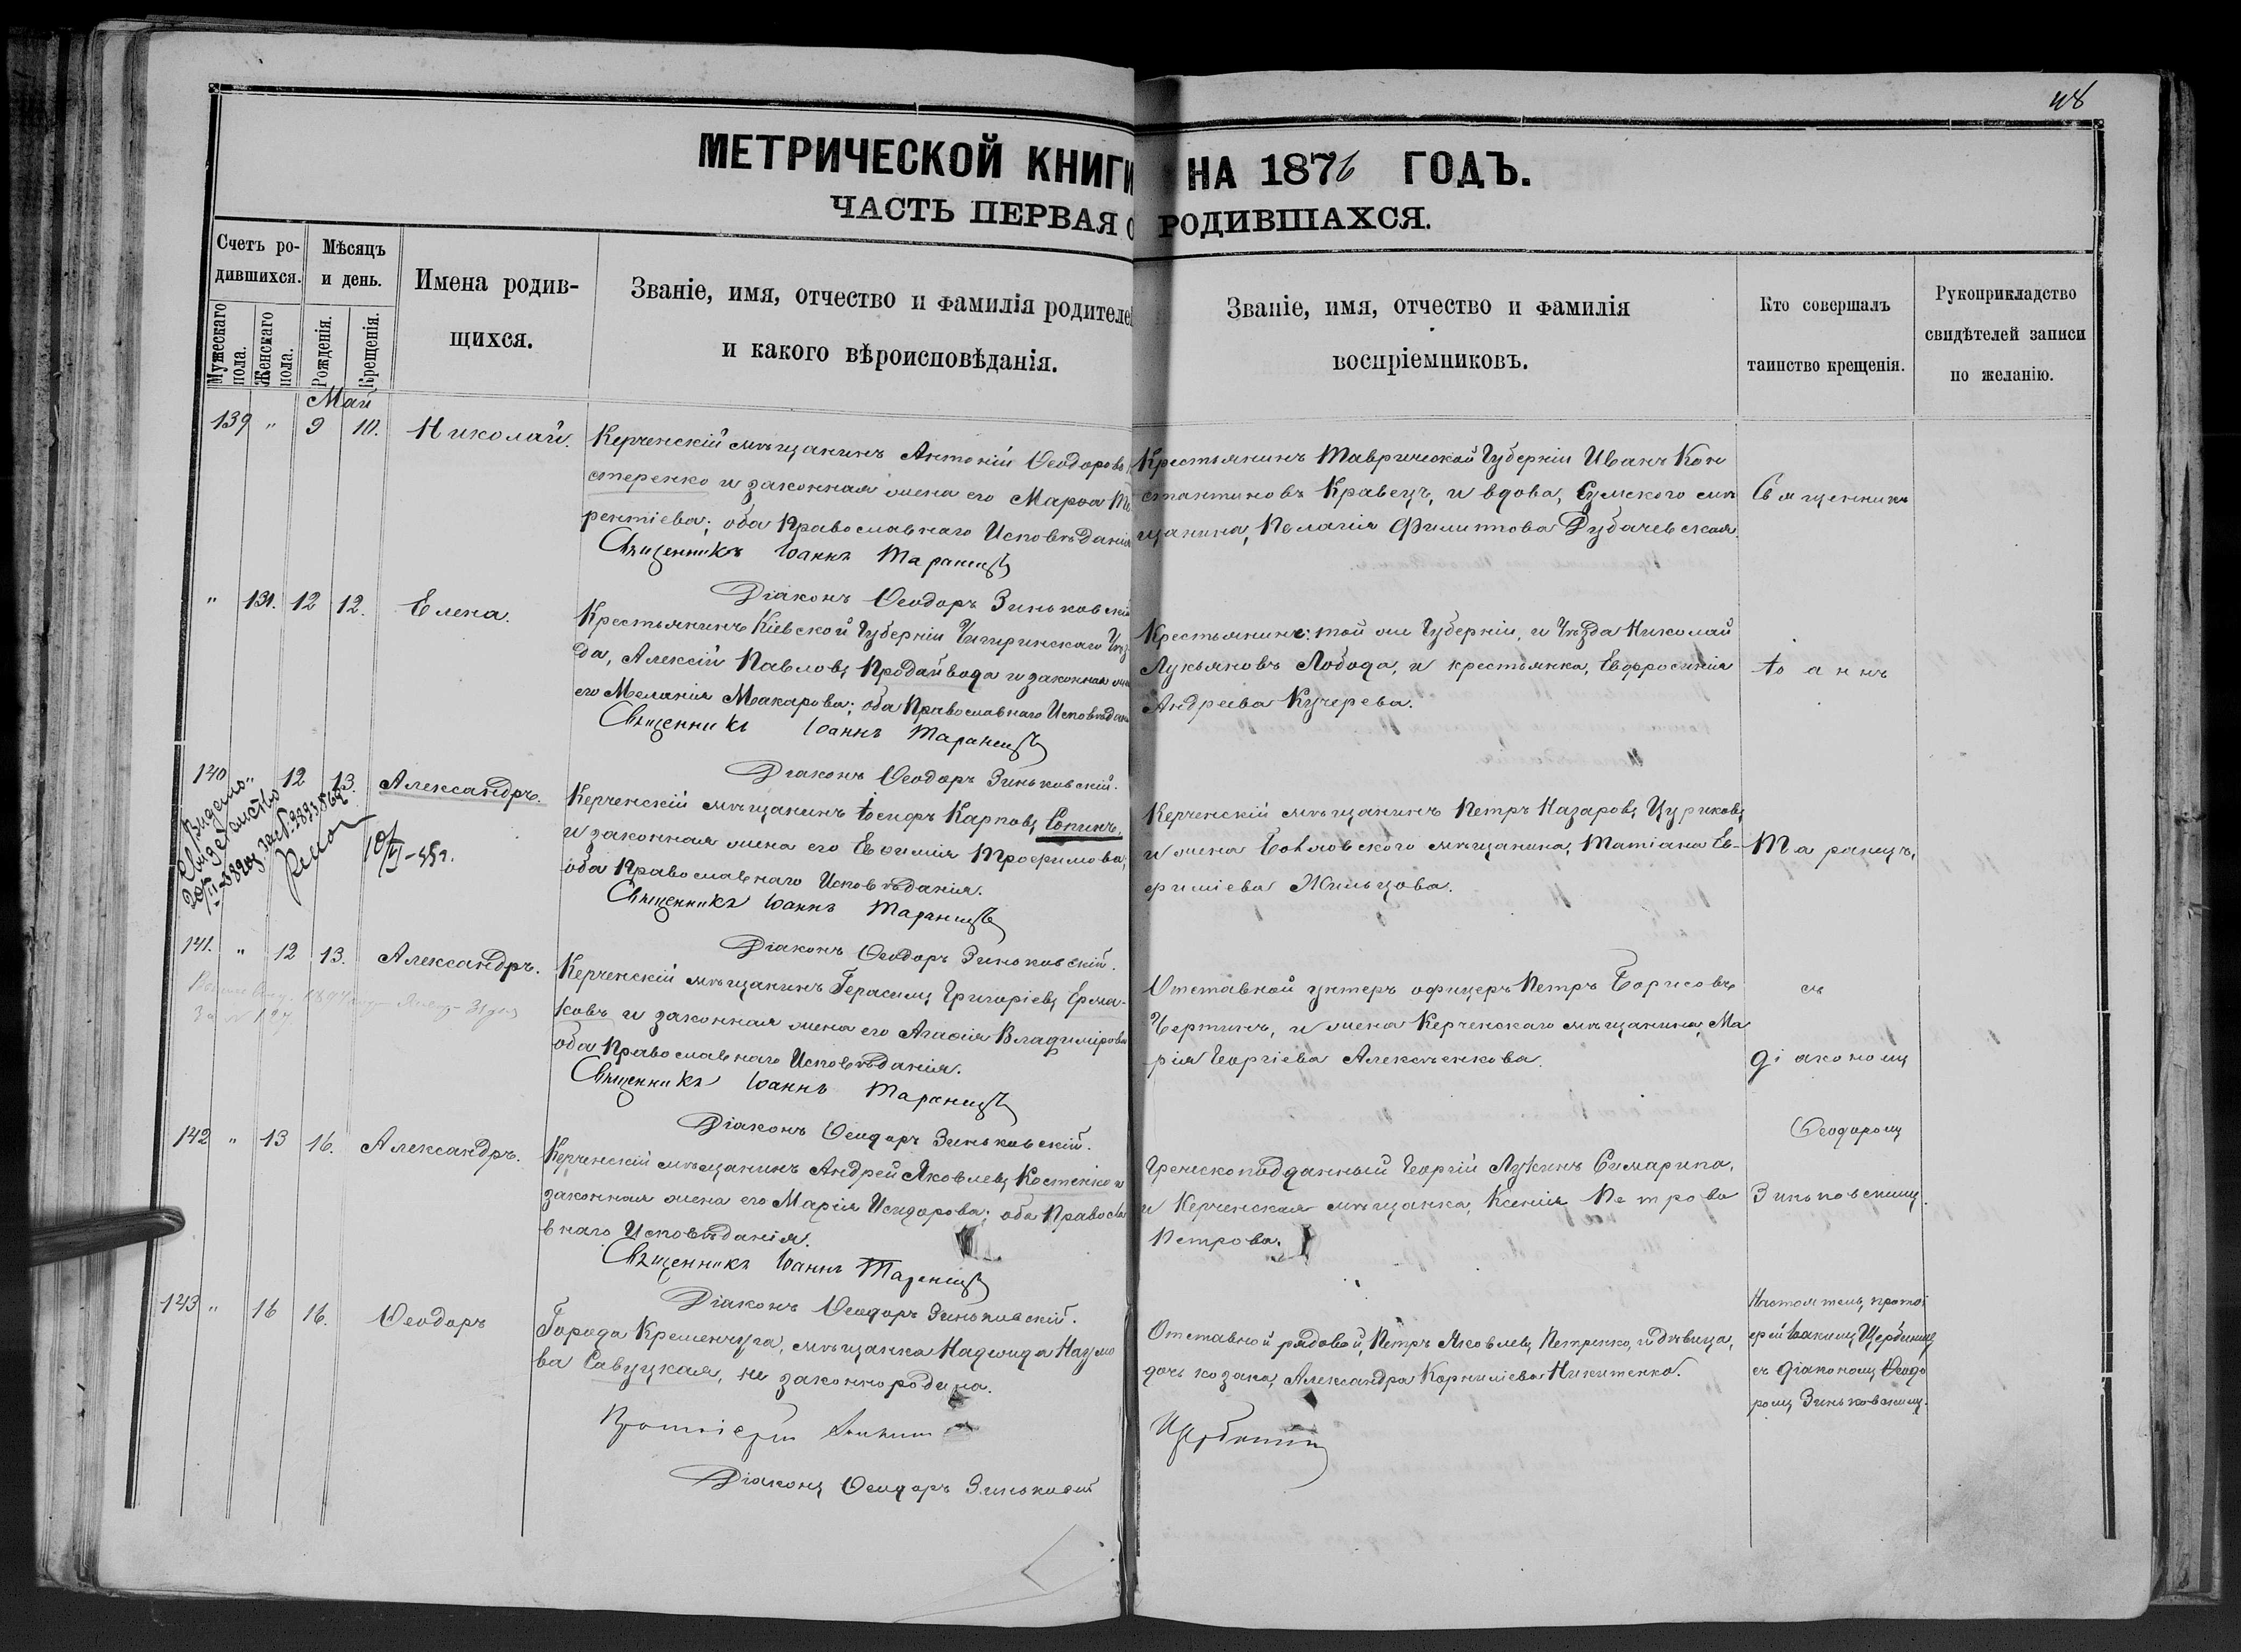 48
МЕТРИЧЕСКОЙ КНИГИ НА 1876 ГОДЪ.
ЧАСТЬ ПЕРВАЯ О РОДИВШАХСЯ.
Счетъ ро-
дившихся.
Мужескаго пола.
Женскаго пола.
Мѣсяцъ
и день.
Рожденія.
Крещенія.
Имена родив-
щихся.
Званіе, имя, отчество и фамилія родителей
и какого вѣроисповѣданія.
Званіе, имя, отчество и фамилія
воспріемниковъ.
Кто совершалъ
таинство крещенія.
Рукоприкладство
свидѣтелей записи
по желанію.
Май
139 " 9 10. Николай.
Керченскій мѣщанинъ Антоній Ѳеодоровъ
стеренко и законная жена его Марѳа Те
рентіева; оба Православнаго Исповѣданія
Священникъ Іоаннъ Таранецъ
Діаконъ Ѳеодоръ Зиньковскій
Крестьянинъ Таврической Губерніи Иванъ Кон
стантиновъ Кравецъ, и вдова, Сумского мѣ
щанина, Пелагія Филиппова Дубачевская.
Священникъ
" 131. 12 12. Елена.
Крестьянинъ Кіевской Губерніи Чигиринскаго Уѣз
да, Алексій Павловъ Продайвода и законная жена
его Меланія Макарова; оба Православнаго Исповѣдан
Священникъ Іоаннъ Таранецъ
Діаконъ Ѳеодоръ Зиньковскій.
Крестьянинъ: той же Губерніи, и Уѣзда Николай
Лукьяновъ Лобода, и крестьянка, Евфросинія
Андреева Кучерева.
Іоаннъ
140 " 12 13. Александръ.
Видано
свидетельство
10/II-55г.
Керченскій мѣщанинъ Іосифъ Карповъ Сопинъ,
и законная жена его Евфимія Трофимова,
оба Православнаго Исповѣданія.
Священникъ Іоаннъ Таранецъ
Діаконъ Ѳеодоръ Зиньковскій.
Керченскій мѣщанинъ Петръ Назаровъ Цуриковъ
и жена мѣщанина, Татіана Ев-
филіева Жильцова.
Таранецъ,
141. " 12 13. Александръ.
Керченскій мѣщанинъ Герасимъ Григоріевъ Ерма-
ковъ и законная жена его Агафія Владимірова
оба Православнаго Исповѣданія.
Священникъ Іоаннъ Таранецъ
Діаконъ Ѳеодоръ Зиньковскій.
Отставной унтеръ офицеръ Петръ Борисовъ
Чертинъ, и жена Керченскаго мѣщанина, Ма
рія Георгіева Алексѣенкова.
съ
діакономъ
142 " 13 16. Александръ.
Керченскій мѣщанинъ Андрей Яковлевъ Костенко и
законная жена его Марія Исидорова; оба Правосла
внаго Исповѣданія.
Священникъ Іоаннъ Таранецъ
Діаконъ Ѳеодоръ Зиньковскій.
Греческоподданный Георгій Лукинъ Симарипа,
и Керченская мѣщанка, Ксенія Петрова
Петрова.
Ѳеодоромъ
Зиньковскимъ.
143 " 16 16. Ѳеодоръ
Города Кременчуга, мѣщанка Надежда Наумо
ва Савуцкая, не законнорождена.
Протоіерей Іоакимъ Щербининъ
Діаконъ Ѳеодоръ Зиньковскій
Отставной рядовой, Петръ Яковлевъ Петренко, и дѣвица,
дочь козака, Александра Корниліева Никитенко.
Настоятель, протоі
ерей Іоакимъ Щербининъ
съ діакономъ Ѳеодо
ромъ Зиньковскимъ.